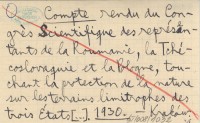 Compte rendu du Con-
grès Scientifique des représen-
tants de la Roumanie, la Tché-
coslovaquie et la Pologne, tou-
chant la protection de la nature
sur les terrains limitrophes des
trois États [...] 1930.